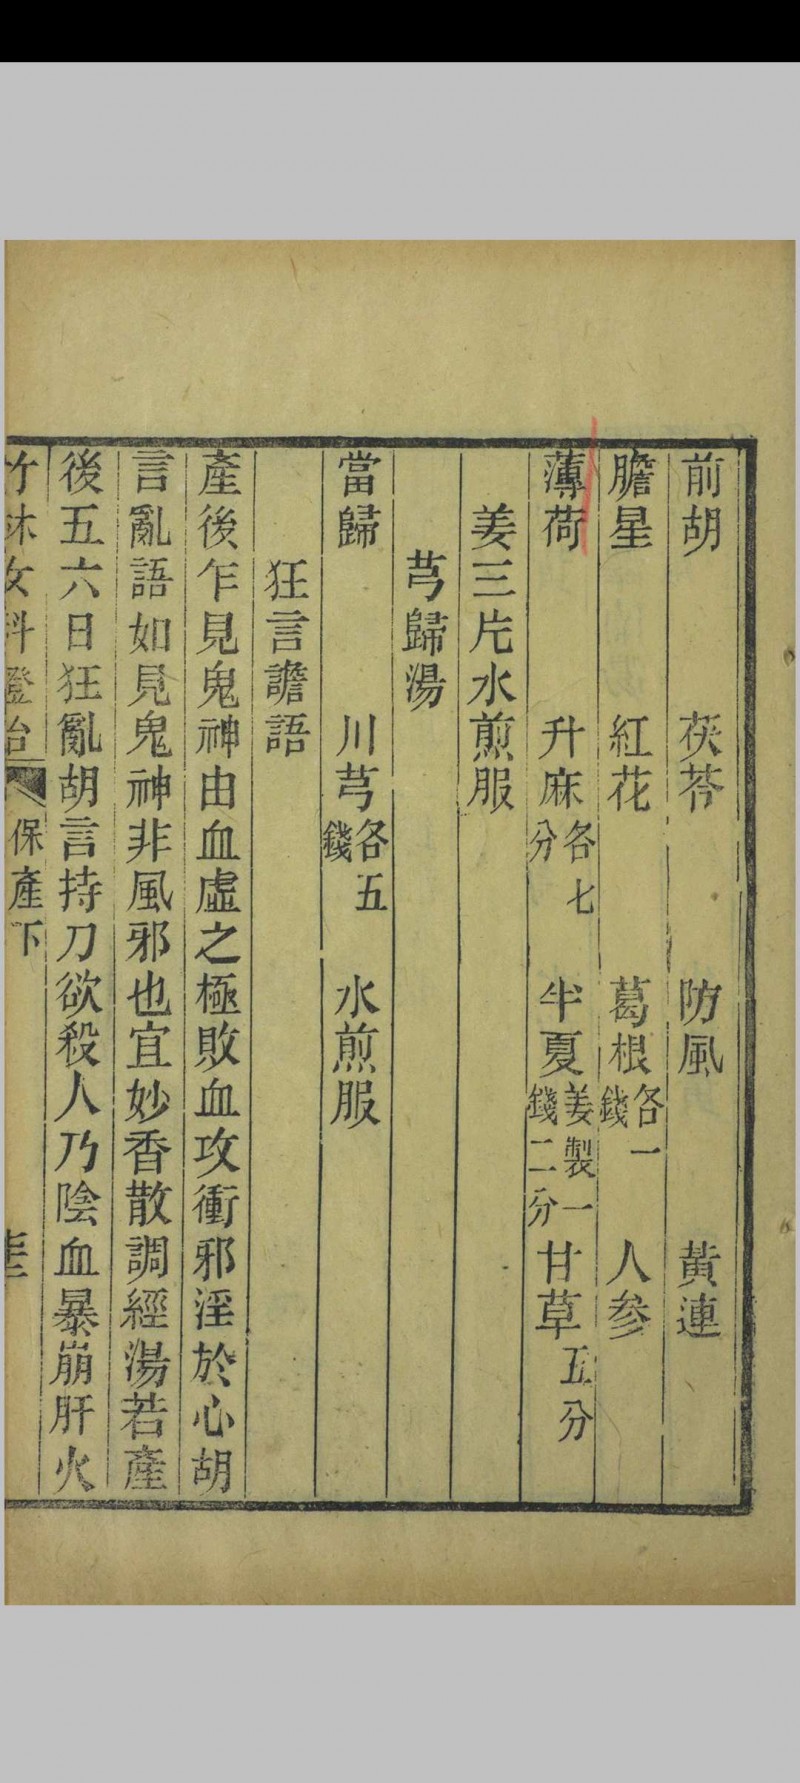 前胡 茯苓 防風 黃連
膽星 紅花 葛根各一錢 人參
薄荷 升麻各七分 半夏姜製一錢二分 甘草五分
姜三片水煎服
芎歸湯
當歸 川芎各五錢 水煎服
狂言譫語
產後乍見鬼神由血虛之極敗血攻衝邪淫於心胡
言亂語如見鬼神非風邪也宜妙香散調經湯若產
後五六日狂亂胡言持刀欲殺人乃陰血暴崩肝火
竹林女科證治 保產下